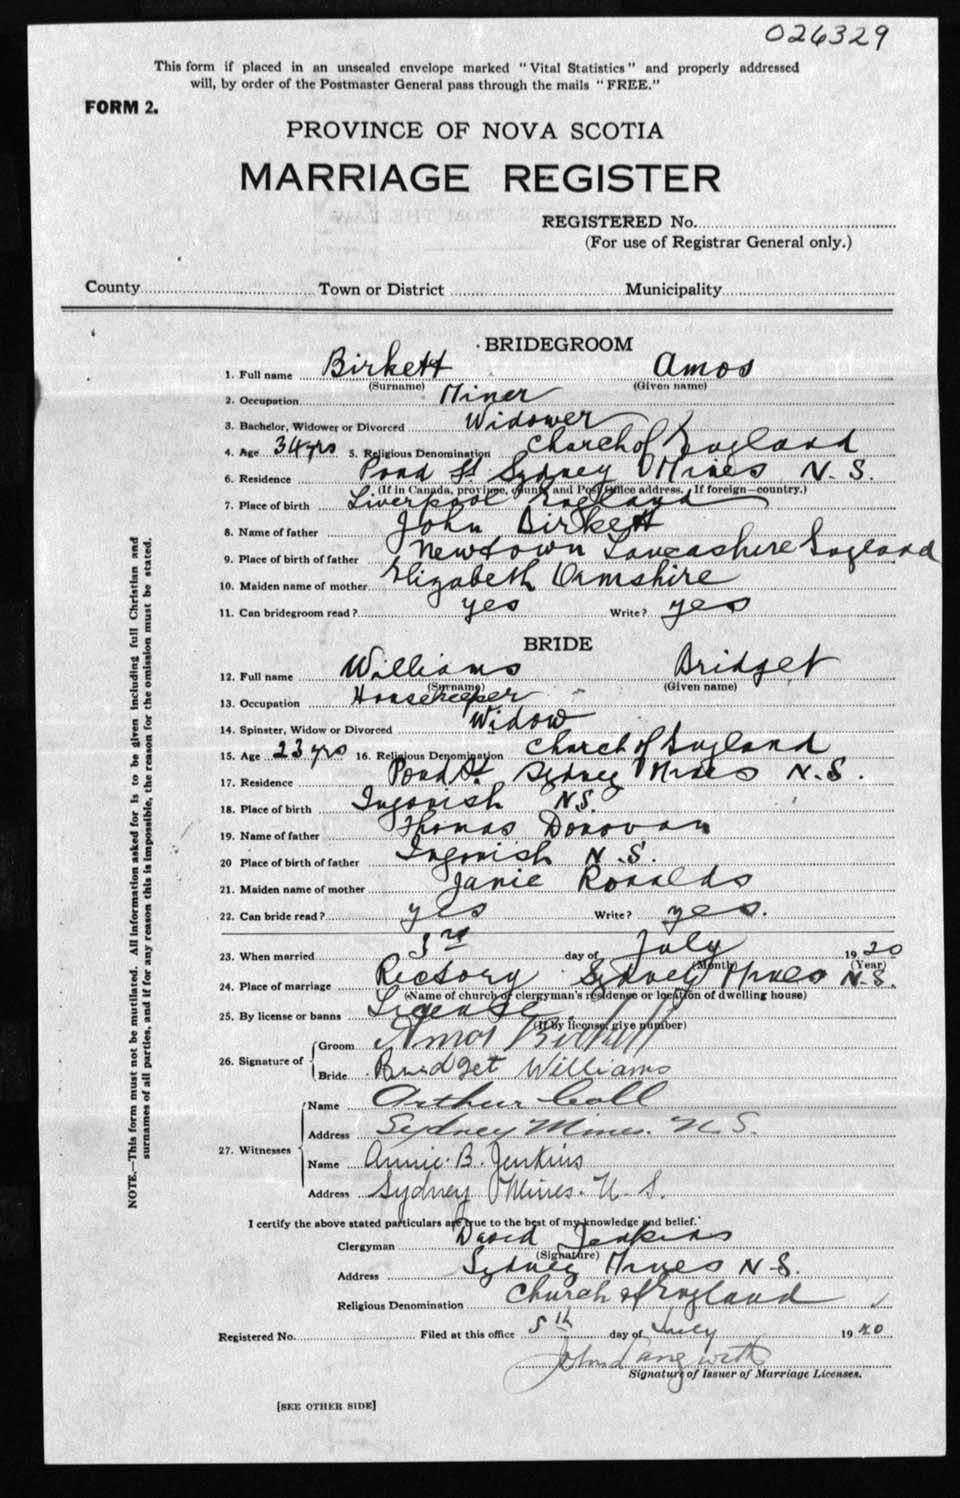 026329
This form if placed in an unsealed envelope marked "Vital Statistics" and properly addressed
will, by order of the Postmaster General pass through the mails "FREE."
FORM 2.
PROVINCE OF NOVA SCOTIA
MARRIAGE REGISTER
REGISTERED No.
(For use of Registrar General only.)
County Town or District Municipality
BRIDEGROOM
1. Full name Birkett Amos
(Surname) (Given name)
2. Occupation Miner
3. Bachelor, Widower or Divorced Widower
4. Age 34 yrs 5. Religious Denomination Church of England
6. Residence Pond St. Sydney Mines N.S.
(If in Canada, province, county and Post Office address. If foreign—country.)
7. Place of birth Liverpool England
8. Name of father John Birkett
9. Place of birth of father Newtown Lancashire England
10. Maiden name of mother Elizabeth Ormshire
11. Can bridegroom read? yes Write? yes
BRIDE
12. Full name Williams Bridget
(Surname) (Given name)
13. Occupation Housekeeper
14. Spinster, Widow or Divorced Widow
15. Age 23 yrs 16. Religious Denomination Church of England
17. Residence Pond St Sydney Mines N.S.
18. Place of birth Ingonish N.S.
19. Name of father Thomas Donovan
20 Place of birth of father Ingonish N.S.
21. Maiden name of mother Janie Ronalds
22. Can bride read? yes Write? yes.
23. When married 3rd day of July 1920
(Month) (Year)
24. Place of marriage Rectory Sydney Mines N.S.
(Name of church or clergyman's residence or location of dwelling house)
25. By license or banns License
(If by license, give number)
26. Signature of Groom Amos Birkett
Bride Bridget Williams
27. Witnesses Name Arthur Coll
Address Sydney Mines. N.S.
Name Annie B. Jenkins
Address Sydney Mines. N.S.
I certify the above stated particulars are true to the best of my knowledge and belief.
Clergyman David Jenkins
(Signature)
Address Sydney Mines N.S.
Religious Denomination Church of England
Registered No. Filed at this office 5th day of July 1920
John Langwith
Signature of Issuer of Marriage Licenses.
[SEE OTHER SIDE]
NOTE.—This form must not be mutilated. All information asked for is to be given including full Christian and
surnames of all parties, and if for any reason this is impossible, the reason for the omission must be stated.